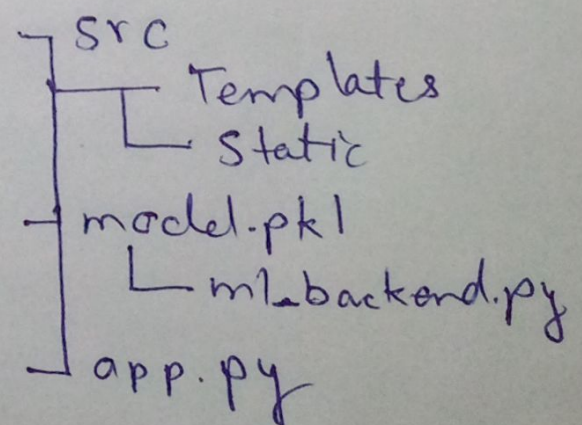 src
Templates
Static
model.pkl
ml_backend.py
app.py